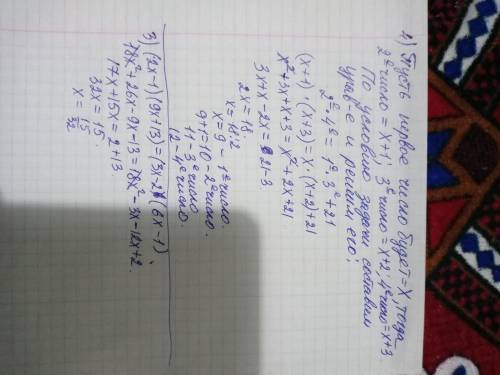 4) Пусть первое число будет = x, тогда
2е число = x+1. 3е число = x+2; 4е число = x+3.
По условию задачи составим
уравне и решим его:
2е · 4е = 1е · 3е + 21
(x+1) · (x+3) = x · (x+2) + 21
x² + 3x + x + 3 = x² + 2x + 21
3x + x - 2x = 21 - 3
2x = 18.
x = 18:2
x = 9 - 1е число
9+1 = 10 - 2е число.
11 - 3е число
12 - 4е число.
3) (2x-1)(9x+13) = (3x-2)(6x-1)
18x² + 26x - 9x - 13 = 18x² - 3x - 12x + 2.
17x + 15x = 2 + 13
32x = 15.
x = 15/32